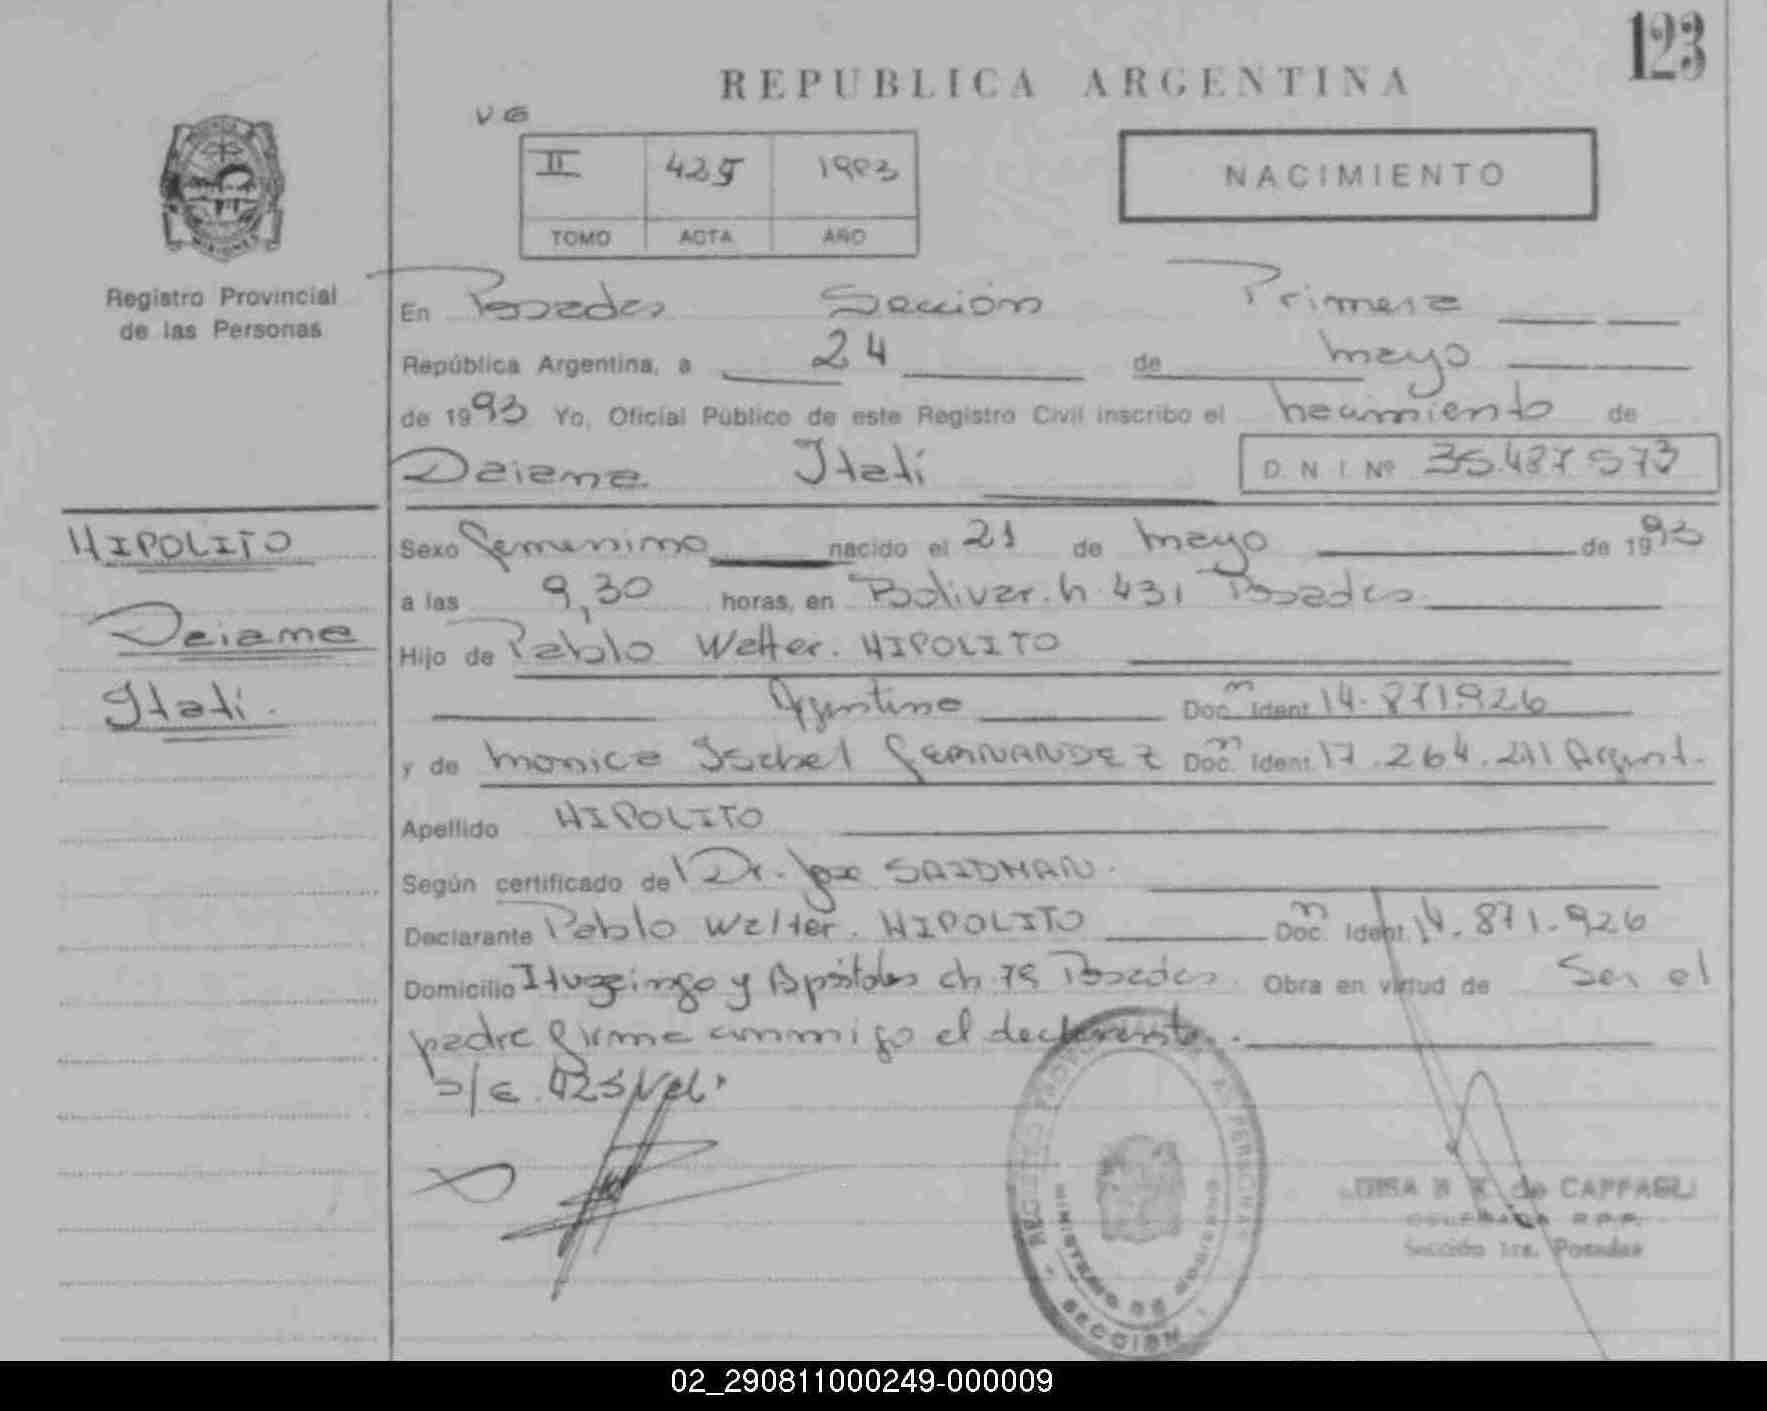 123
REPUBLICA ARGENTINA
VG
II 425 1993
TOMO ACTA AÑO
NACIMIENTO
MISIONES
Registro Provincial
de las Personas
En Posadas Sección Primera
República Argentina, a 24 de mayo
de 1993 Yo, Oficial Público de este Registro Civil inscribo el nacimiento de
Daiana Itatí D. N. I. Nº 35.487.573
HIPOLITO
Daiana
Itatí.
Sexo femenino nacido el 21 de mayo de 1993
a las 9,30 horas, en Bolivar. n 431 Posadas
Hijo de Pablo Walter. HIPOLITO
Argentino Doc. Ident 14.871.926
y de Monica Isabel FERNANDEZ Doc. Ident. 17.264.211 Argent.
Apellido HIPOLITO
Según certificado de Dr. Jose SAIDMAN.
Declarante Pablo Walter. HIPOLITO Doc. Ident. 14.871.926
Domicilio Ituzaingo y Apóstoles ch. Posadas. Obra en virtud de Ser el
padre firma conmigo el declarante.
REGISTRO PROVINCIAL DE LAS PERSONAS
MINISTERIO DE GOBIERNO
SECCION 1
de CAFFAGLI
R.P.P.
Sección 1ra. Posadas
02_290811000249-000009